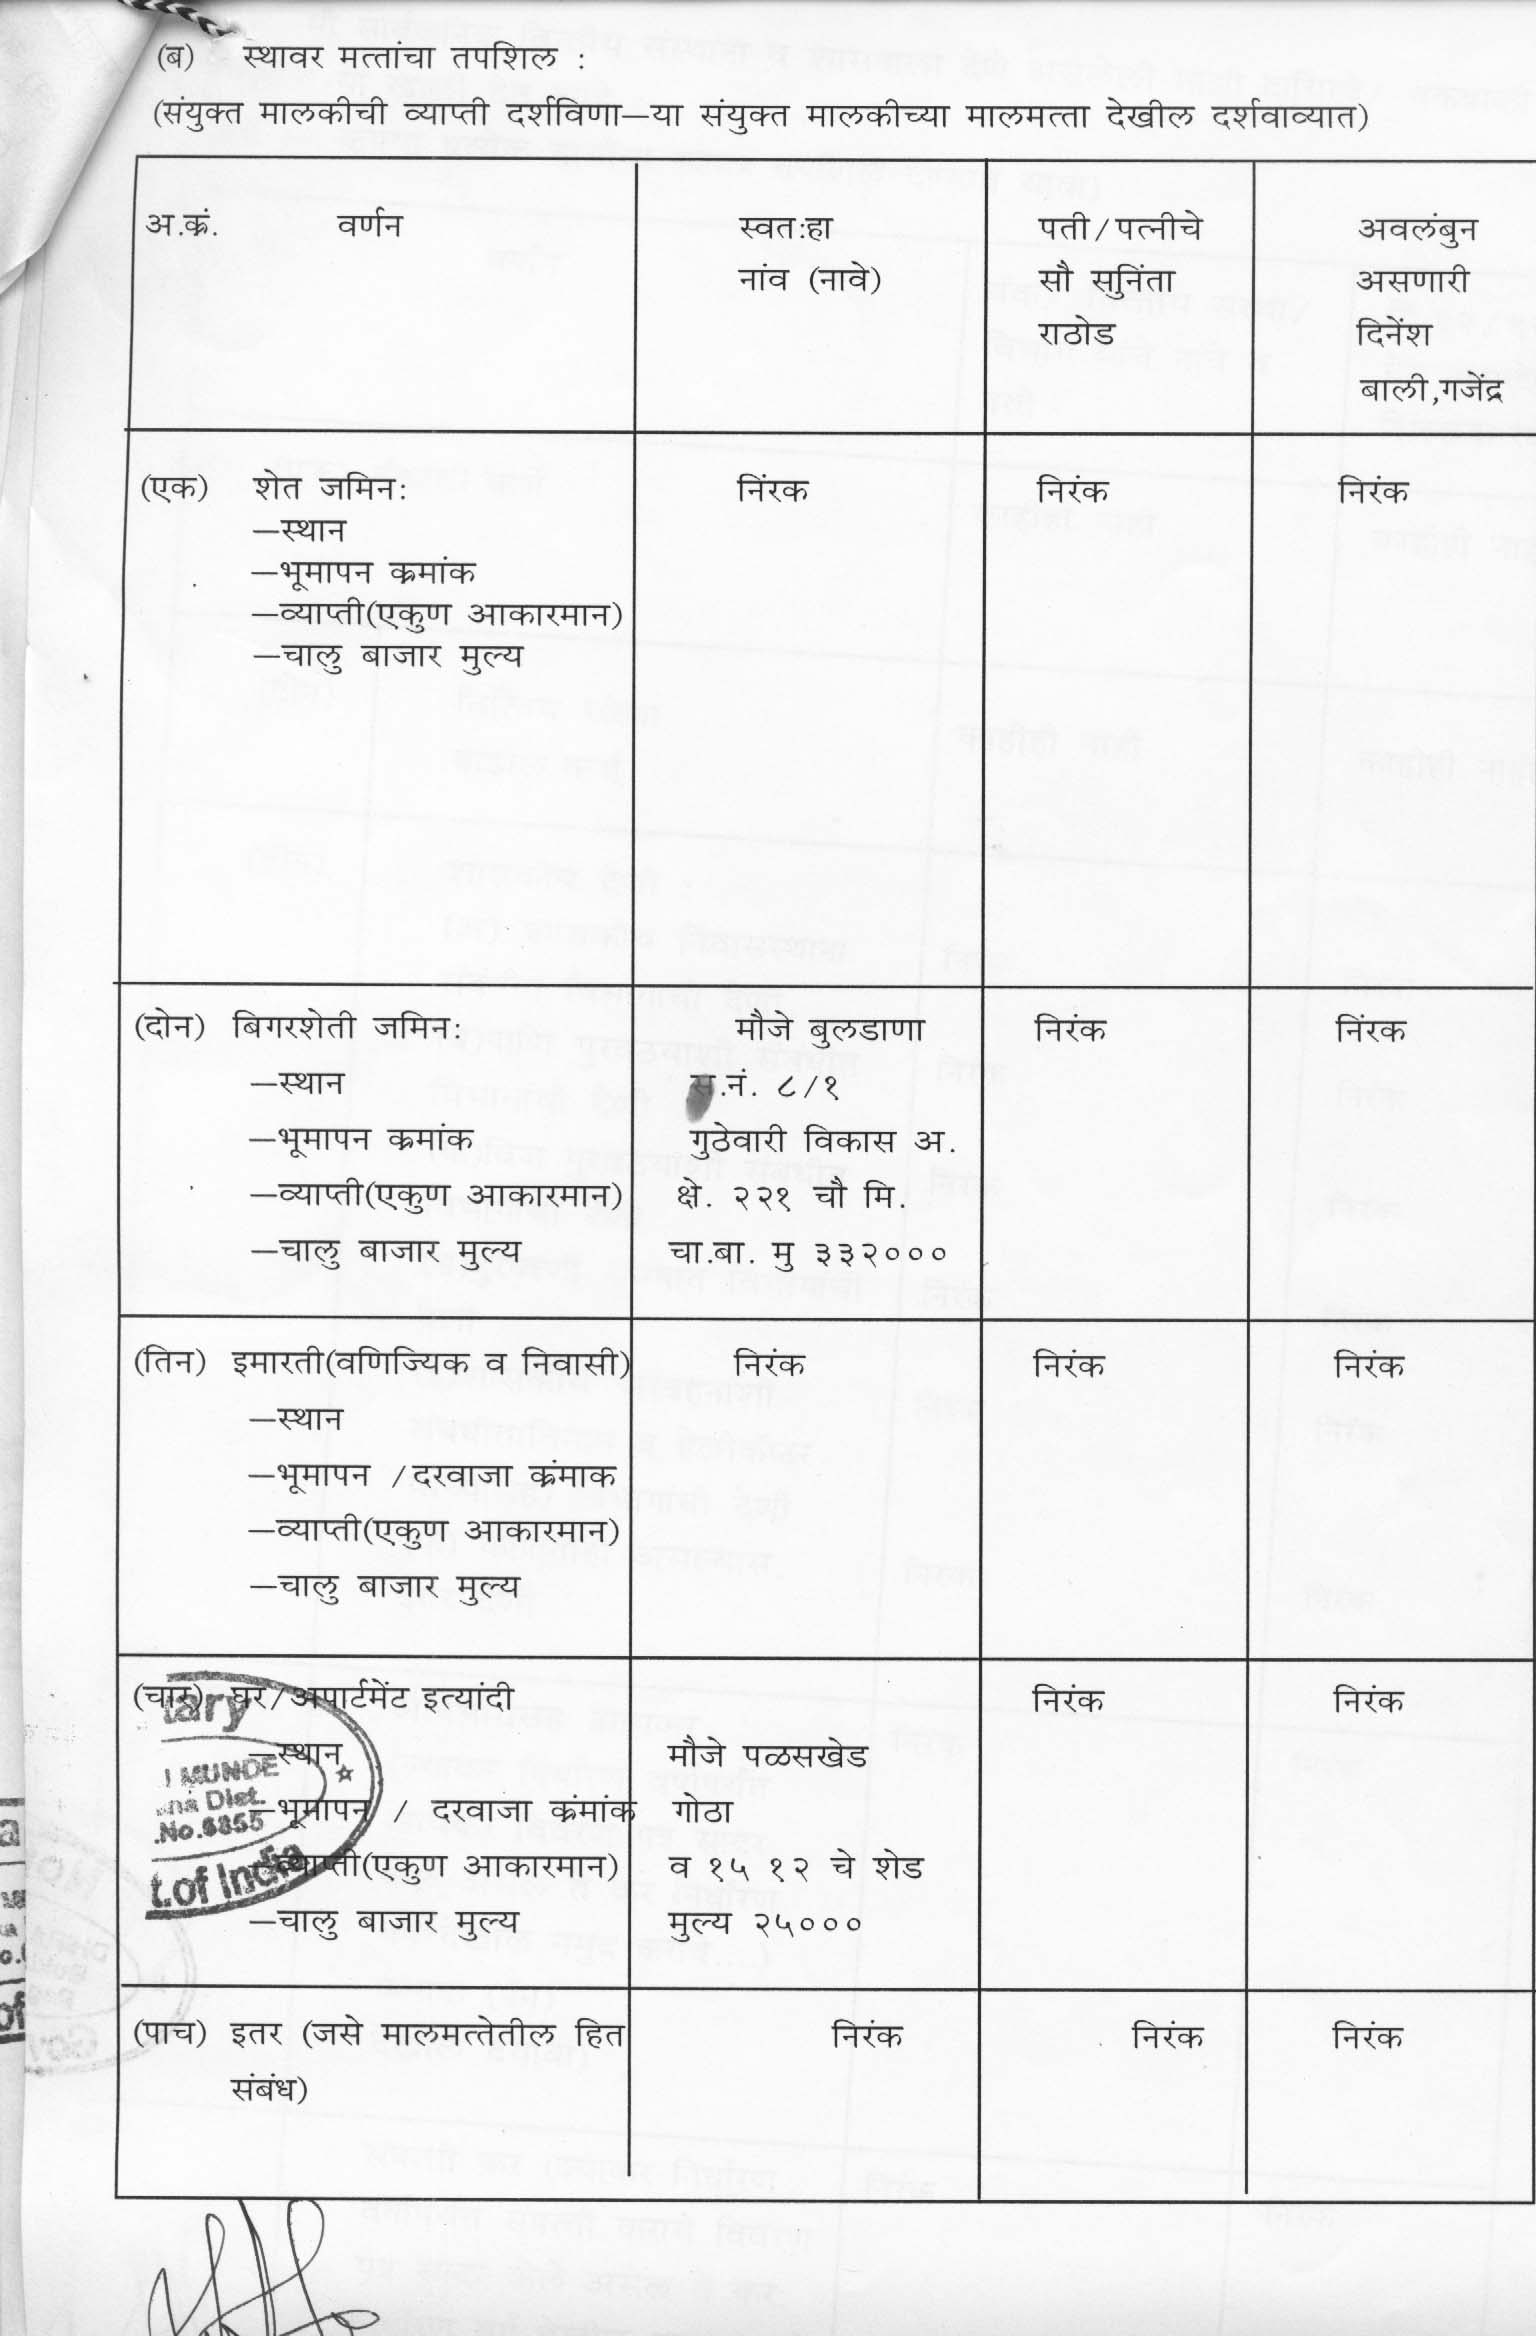 (ब) स्थावर मत्तांचा तपशिल :
(संयुक्त मालकीची व्याप्ती दर्शविणा—या संयुक्त मालकीच्या मालमत्ता देखील दर्शवाव्यात)
अ.क्रं. वर्णन स्वत:हा पती/पत्नीचे अवलंबुन
नांव (नावे) सौ सुनिंता असणारी
राठोड दिनेंश
बाली,गजेंद्र
(एक) शेत जमिन: निंरक निरंक निरंक
—स्थान
—भूमापन क्रमांक
—व्याप्ती(एकुण आकारमान)
—चालु बाजार मुल्य
(दोन) बिगरशेती जमिन: मौजे बुलडाणा निरंक निंरक
—स्थान स.नं. ८/१
—भूमापन क्रमांक गुठेवारी विकास अ.
—व्याप्ती(एकुण आकारमान) क्षे. २२१ चौ मि.
—चालु बाजार मुल्य चा.बा. मु ३३२०००
(तिन) इमारती(वणिज्यिक व निवासी) निरंक निरंक निरंक
—स्थान
—भूमापन /दरवाजा क्रंमाक
—व्याप्ती(एकुण आकारमान)
—चालु बाजार मुल्य
(चार) घर/अपार्टमेंट इत्यांदी निरंक निरंक
—स्थान मौजे पळसखेड
—भूमापन / दरवाजा क्रंमांक गोठा
—व्याप्ती(एकुण आकारमान) व १५ १२ चे शेड
—चालु बाजार मुल्य मुल्य २५०००
(पाच) इतर (जसे मालमत्तेतील हित निरंक निरंक निरंक
संबंध)
tary
MUNDE
Dist.
.No.6855
t.of India